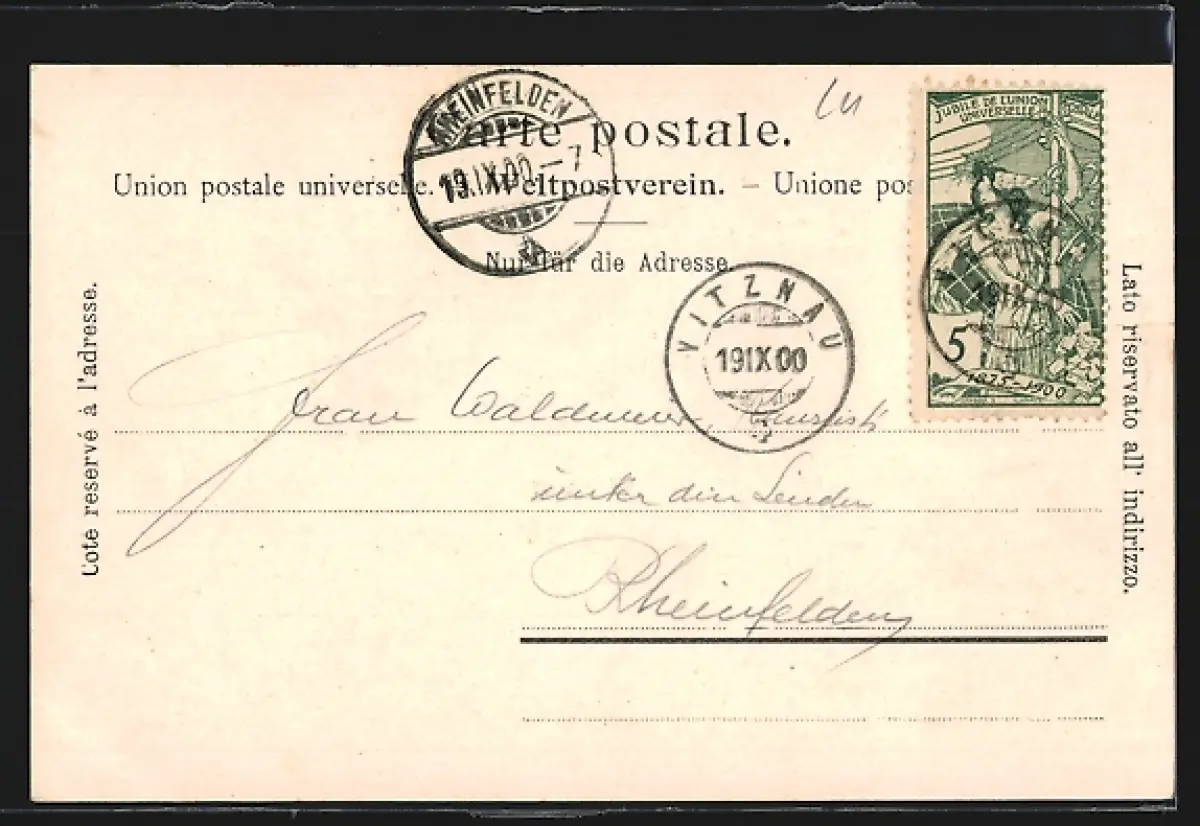 RHEINFELDEN
19.IX.00-7
Carte postale.
Union postale universelle. Weltpostverein. – Unione pos
Nur für die Adresse.
JUBILÉ DE L'UNION POSTALE
UNIVERSELLE
5
1875-1900
19 IX 00
VITZNAU
19 IX 00
Cote reservé à l'adresse.
Lato riservato all' indirizzo.
Frau
unter den Linden
Rheinfelden